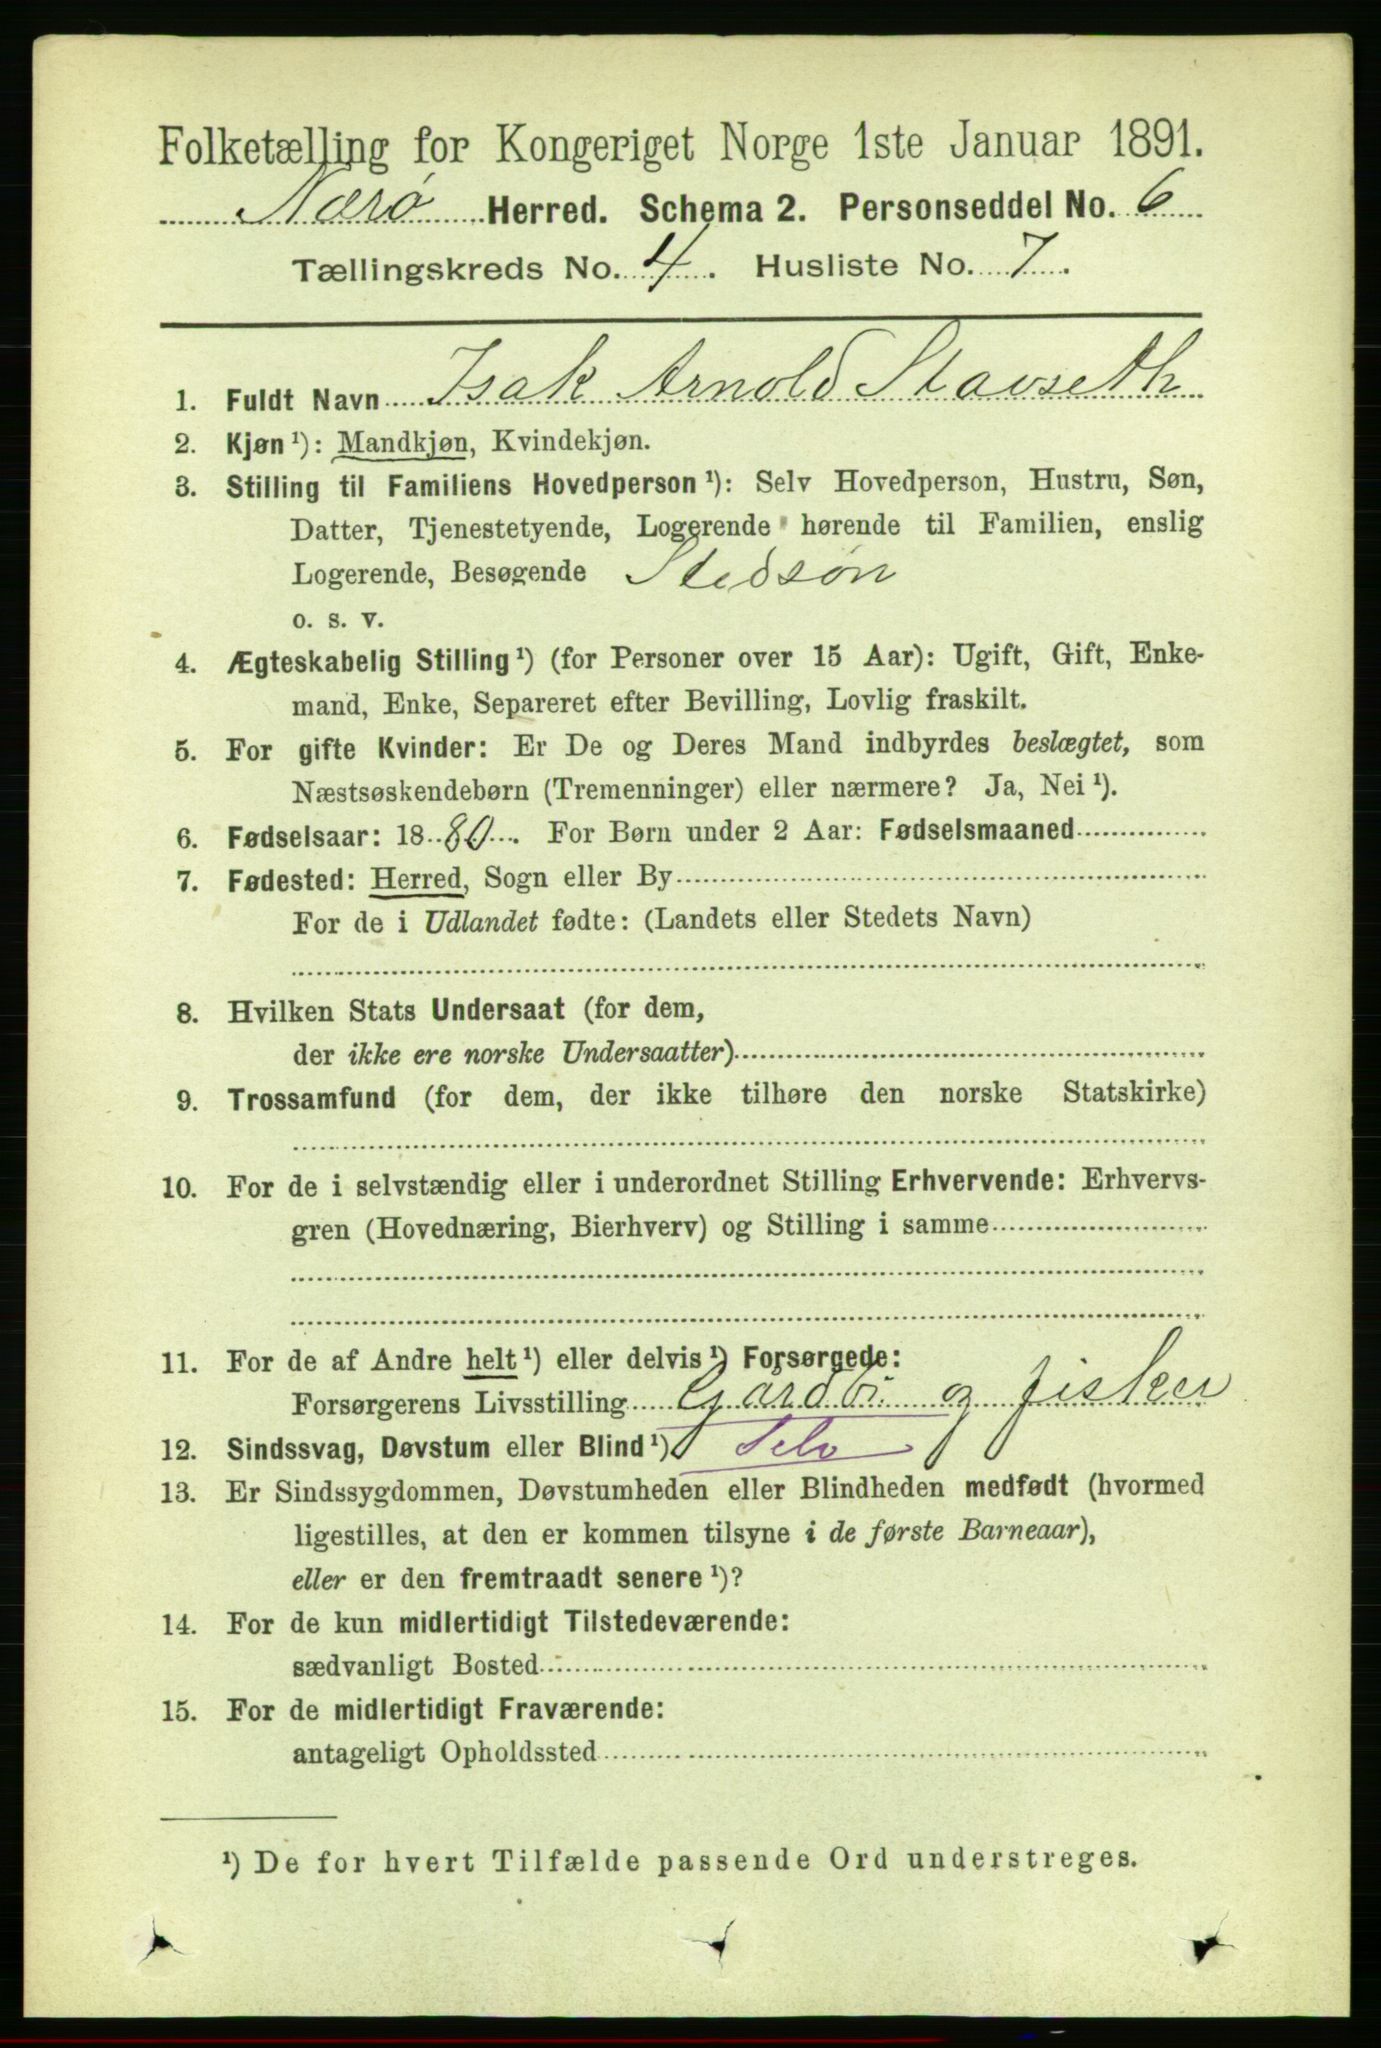 Folketælling for Kongeriget Norge 1ste Januar 1891.
Nærø Herred. Schema 2. Personseddel No. 6
Tællingskreds No. 4. Husliste No. 7.
1. Fuldt Navn Isak Arnold Stavseth
2. Kjøn ¹): Mandkjøn, Kvindekjøn.
3. Stilling til Familiens Hovedperson ¹): Selv Hovedperson, Hustru, Søn,
Datter, Tjenestetyende, Logerende hørende til Familien, enslig
Logerende, Besøgende Stedsøn
o. s. v.
4. Ægteskabelig Stilling ¹) (for Personer over 15 Aar): Ugift, Gift, Enke-
mand, Enke, Separeret efter Bevilling, Lovlig fraskilt.
5. For gifte Kvinder: Er De og Deres Mand indbyrdes beslægtet, som
Næstsøskendebørn (Tremenninger) eller nærmere? Ja, Nei ¹).
6. Fødselsaar: 1880. For Børn under 2 Aar: Fødselsmaaned
7. Fødested: Herred, Sogn eller By
For de i Udlandet fødte: (Landets eller Stedets Navn)
8. Hvilken Stats Undersaat (for dem,
der ikke ere norske Undersaatter)
9. Trossamfund (for dem, der ikke tilhøre den norske Statskirke)
10. For de i selvstændig eller i underordnet Stilling Erhvervende: Erhvervs-
gren (Hovednæring, Bierhverv) og Stilling i samme
11. For de af Andre helt ¹) eller delvis ¹) Forsørgede:
Forsørgerens Livsstilling og fisker
12. Sindssvag, Døvstum eller Blind ¹) Selv
13. Er Sindssygdommen, Døvstumheden eller Blindheden medfødt (hvormed
ligestilles, at den er kommen tilsyne i de første Barneaar),
eller er den fremtraadt senere ¹)?
14. For de kun midlertidigt Tilstedeværende:
sædvanligt Bosted
15. For de midlertidigt Fraværende:
antageligt Opholdssted
¹) De for hvert Tilfælde passende Ord understreges.